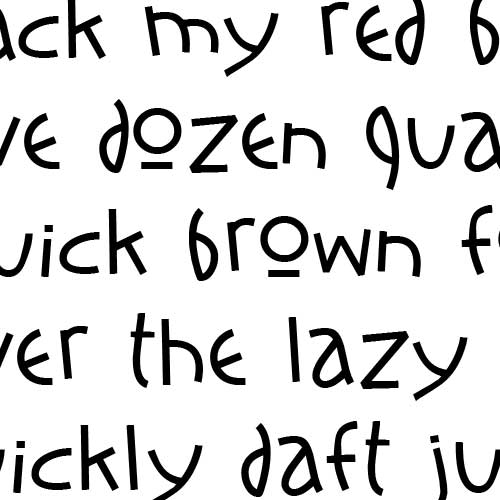 ack my red b
ve dozen qua
uick brown fo
ver the lazy
uickly daft ju